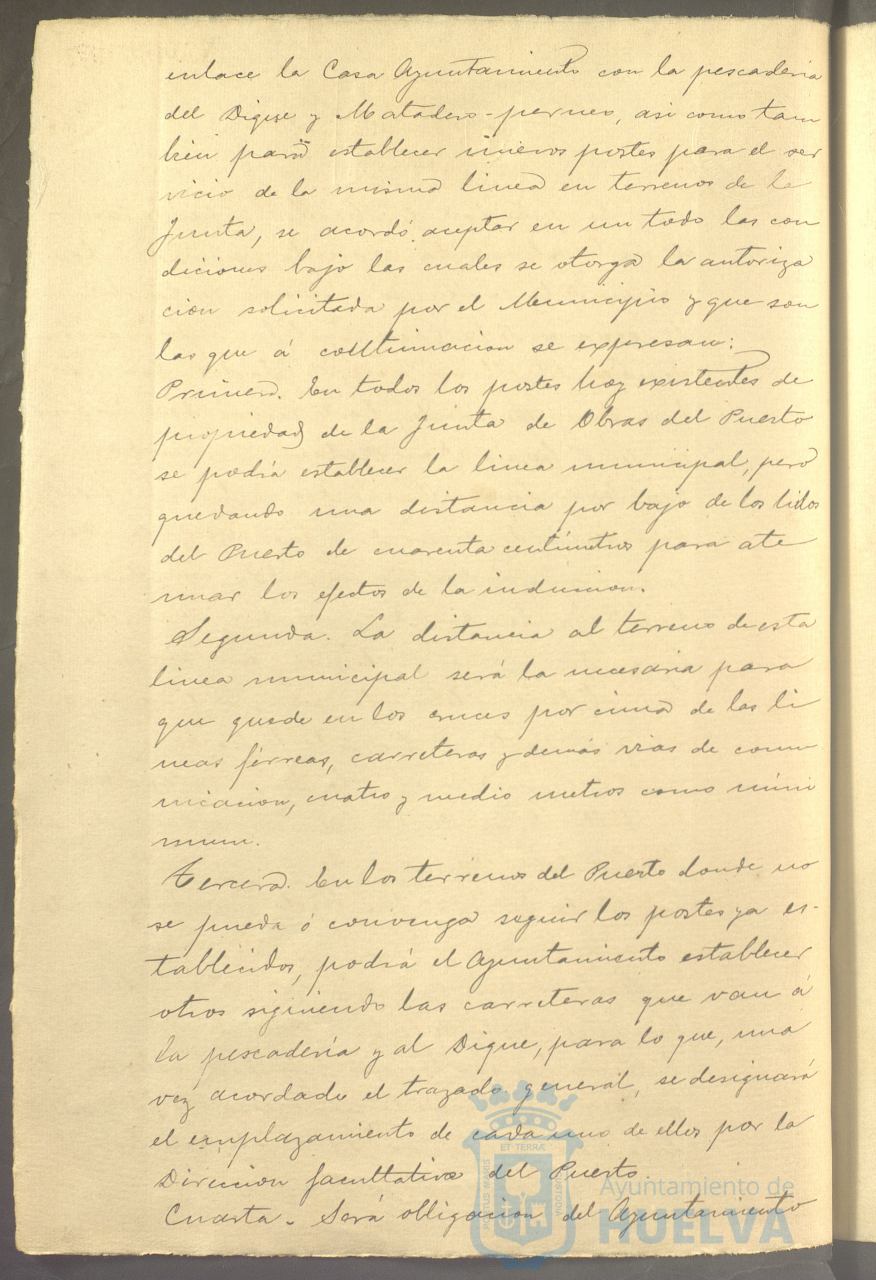 enlace la Casa Ayuntamiento con la pescaderia
del Dique y Matadero-perneo, asi como tam
bien para establecer nuevos postes para el ser
vicio de la misma linea en terrenos de la
Junta, se acordó aceptar en un todo las con
diciones bajo las cuales se otorga la autoriza
cion solicitada por el Municipio y que son
las que á continuacion se expresan:
Primera. En todos los postes hoy existentes de
propiedad de la Junta de Obras del Puerto
se podrá establecer la linea municipal, pero
quedando una distancia por bajo de los hilos
del Puerto de cuarenta centímetros para ate
nuar los efectos de la induccion.
Segunda. La distancia al terreno de esta
linea municipal será la necesaria para
que quede en los cruces por cima de las li
neas férreas, carreteras y demás vias de comu
nicacion, cuatro y medio metros como mini
mum.
Tercera. En los terrenos del Puerto donde no
se pueda ó convenga seguir los postes ya es-
tablecidos, podrá el Ayuntamiento establecer
otros siguiendo las carreteras que van á
la pescadería y al Dique, para lo que, una
vez acordado el trazado general, se designará
el emplazamiento de cada uno de ellos por la
Direccion facultativa del Puerto.
Cuarta. Será obligacion del Ayuntamiento
ET TERRÆ
Ayuntamiento de
HUELVA